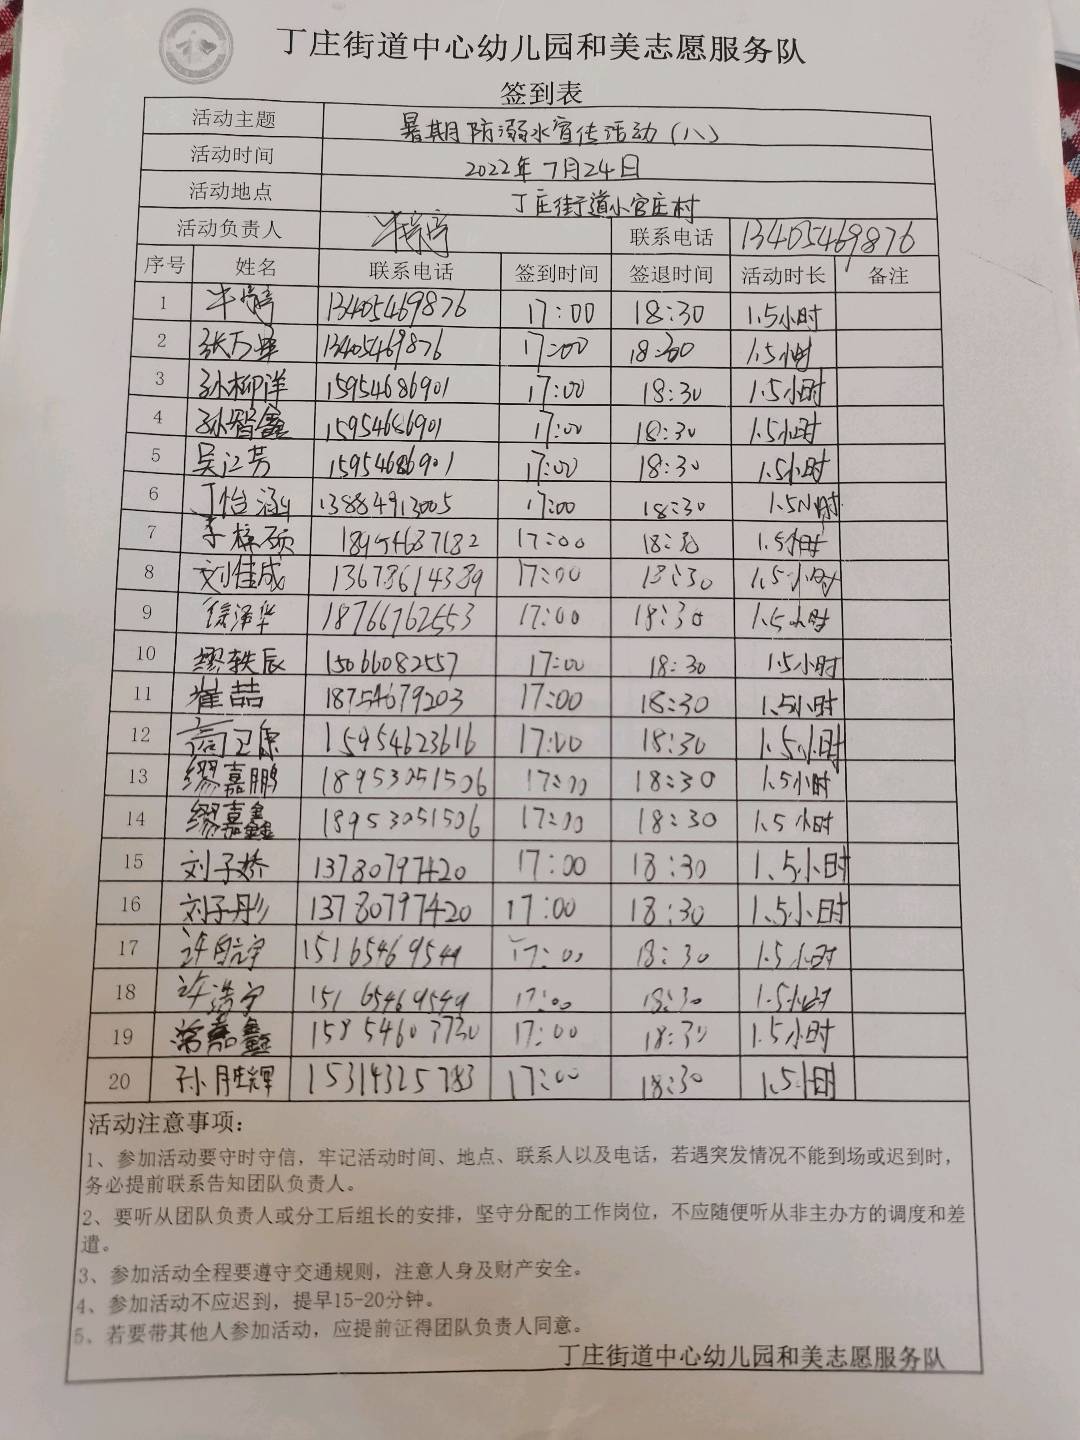 丁庄街道中心幼儿园和美志愿服务队
签到表
活动主题 暑期防溺水宣传活动（八）
活动时间 2022年7月24日
活动地点 丁庄街道小官庄村
活动负责人 联系电话 13405469876
序号 姓名 联系电话 签到时间 签退时间 活动时长 备注
1 13405469876 17:00 18:30 1.5小时
2 13405469876 17:00 18:30 1.5小时
3 孙柳洋 15954686901 17:00 18:30 1.5小时
4 孙智鑫 15954686901 17:00 18:30 1.5小时
5 吴江芳 15954686901 17:00 18:30 1.5小时
6 丁怡涵 13884913005 17:00 18:30 1.5小时
7 李梓硕 18954637182 17:00 18:30 1.5小时
8 刘佳成 13678614389 17:00 18:30 1.5小时
9 徐泽华 18766762553 17:00 18:30 1.5小时
10 缪轶辰 15066082557 17:00 18:30 1.5小时
11 崔喆 18754679203 17:00 18:30 1.5小时
12 高卫康 15954623616 17:00 18:30 1.5小时
13 缪嘉鹏 18953051506 17:00 18:30 1.5小时
14 缪嘉鑫 18953051506 17:00 18:30 1.5小时
15 刘子娇 13780797420 17:00 18:30 1.5小时
16 刘子彤 13780797420 17:00 18:30 1.5小时
17 15165469549 17:00 18:30 1.5小时
18 许浩宇 15165469549 17:00 18:30 1.5小时
19 17:00 18:30 1.5小时
20 孙胜辉 15314325783 17:00 18:30 1.5小时
活动注意事项：
1、参加活动要守时守信，牢记活动时间、地点、联系人以及电话，若遇突发情况不能到场或迟到时，
务必提前联系告知团队负责人。
2、要听从团队负责人或分工后组长的安排，坚守分配的工作岗位，不应随便听从非主办方的调度和差
遣。
3、参加活动全程要遵守交通规则，注意人身及财产安全。
4、参加活动不应迟到，提早15-20分钟。
5、若要带其他人参加活动，应提前征得团队负责人同意。
丁庄街道中心幼儿园和美志愿服务队